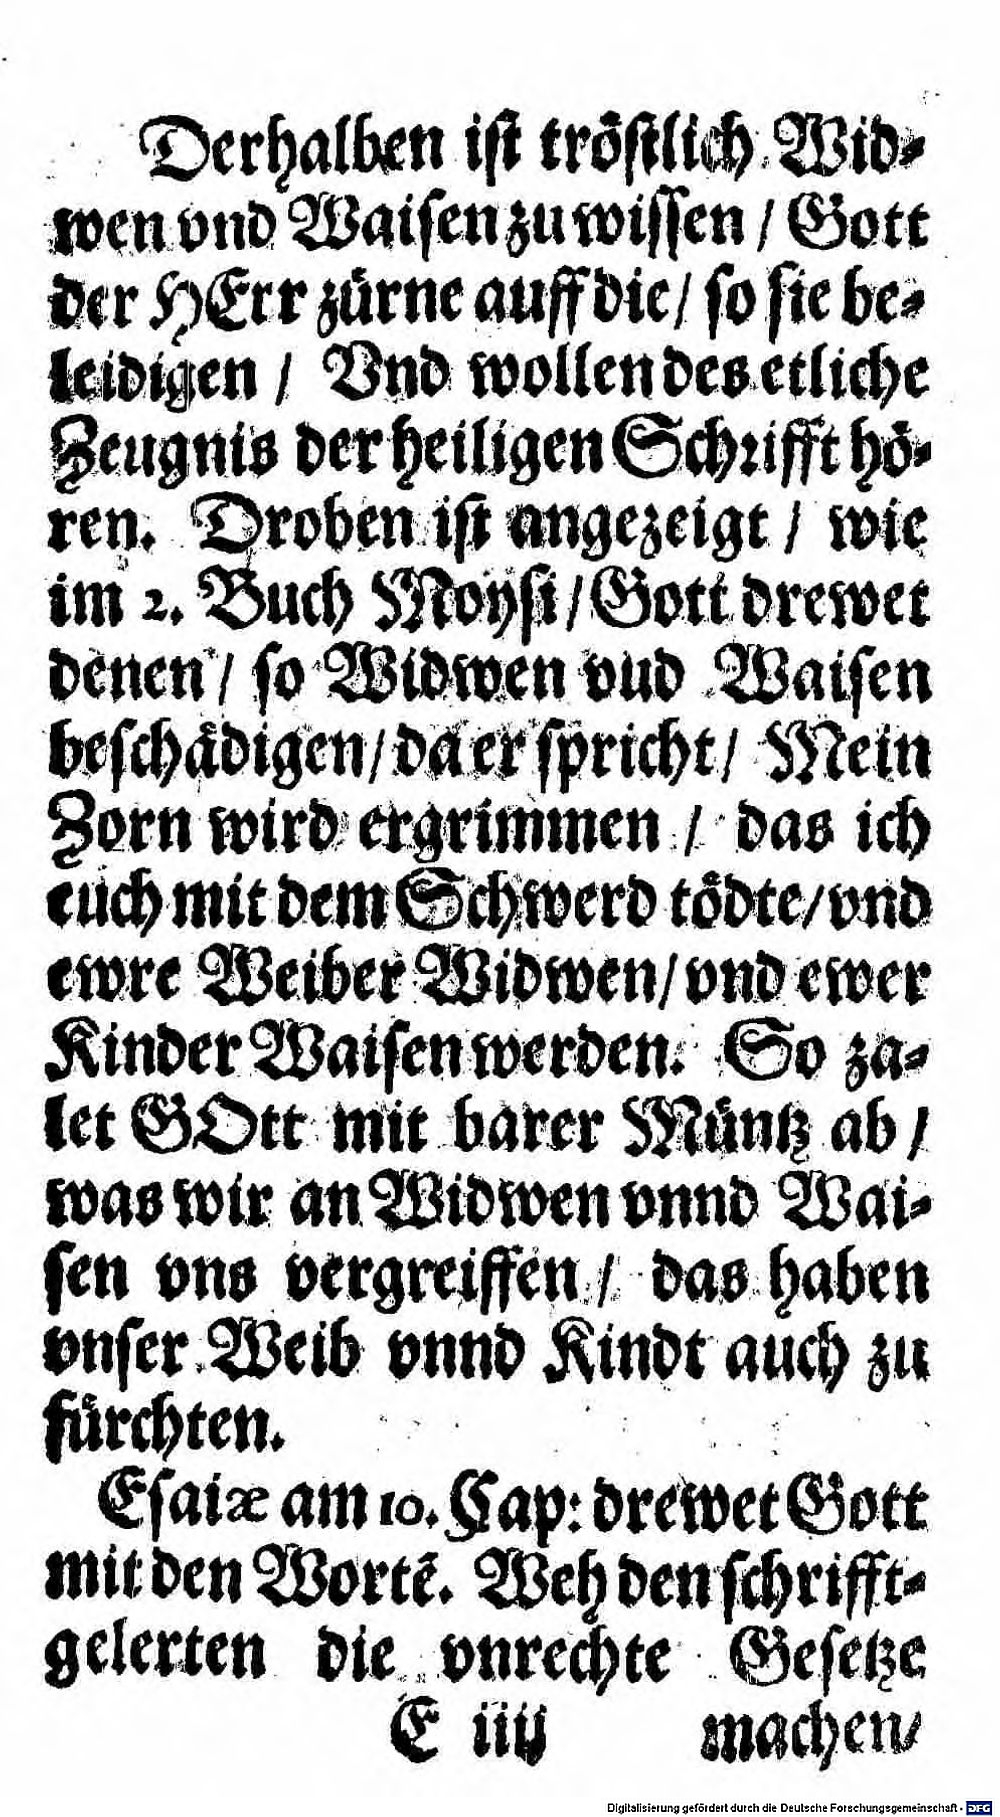 Derhalben iſt tröſtlich Wid⸗
wen vnd Waiſen zu wiſſen / Gott
der HErr zürne auff die / ſo ſie be⸗
leidigen / Vnd wollen des etliche
Zeugnis der heiligen Schrifft hö⸗
ren. Droben iſt angezeigt / wie
im 2. Buch Moyſi / Gott drewet
denen / ſo Widwen vud Waiſen
beſchädigen / da er ſpricht / Mein
Zorn wird ergrimmen / das ich
euch mit dem Schwerd tödte / vnd
ewre Weiber Widwen / vnd ewer
Kinder Waiſen werden. So za⸗
let GOtt mit barer Müntz ab /
was wir an Widwen vnnd Wai⸗
ſen vns vergreiffen / das haben
vnſer Weib vnnd Kindt auch zu
fürchten.
Eſaiæ am 10. Cap: drewet Gott
mit den Wortē. Weh den ſchrifft⸗
gelerten die vnrechte Geſetze
E iiij machen /
Digitalisierung gefördert durch die Deutsche Forschungsgemeinschaft - DFG